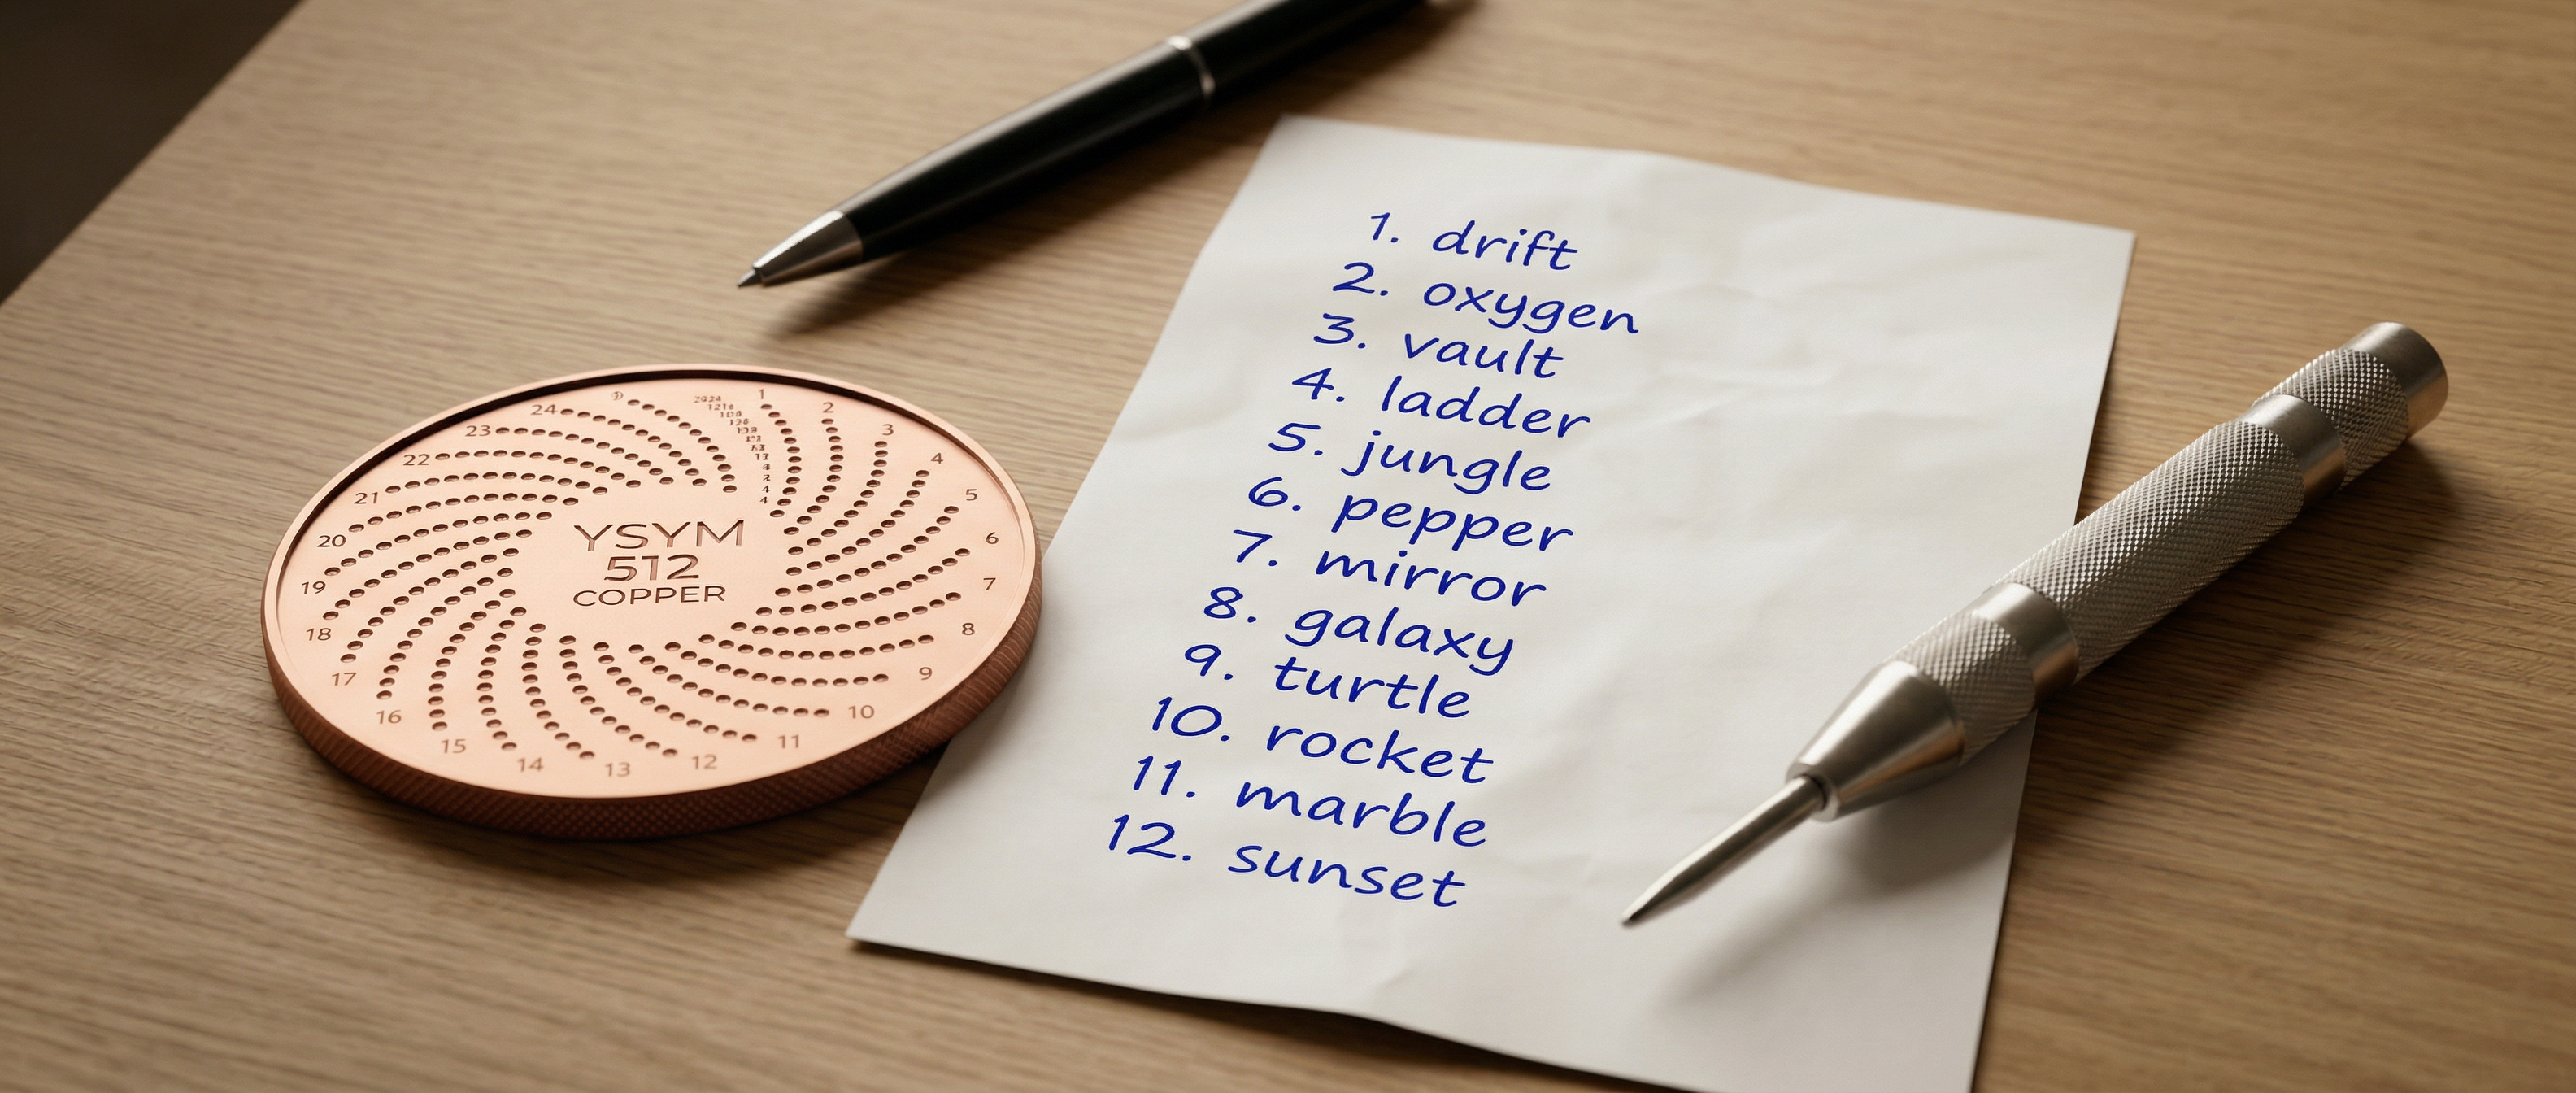 YSYM
512
COPPER
1
2
3
4
5
6
7
8
9
10
11
12
13
14
15
16
17
18
19
20
21
22
23
24
1. drift
2. oxygen
3. vault
4. ladder
5. jungle
6. pepper
7. mirror
8. galaxy
9. turtle
10. rocket
11. marble
12. sunset